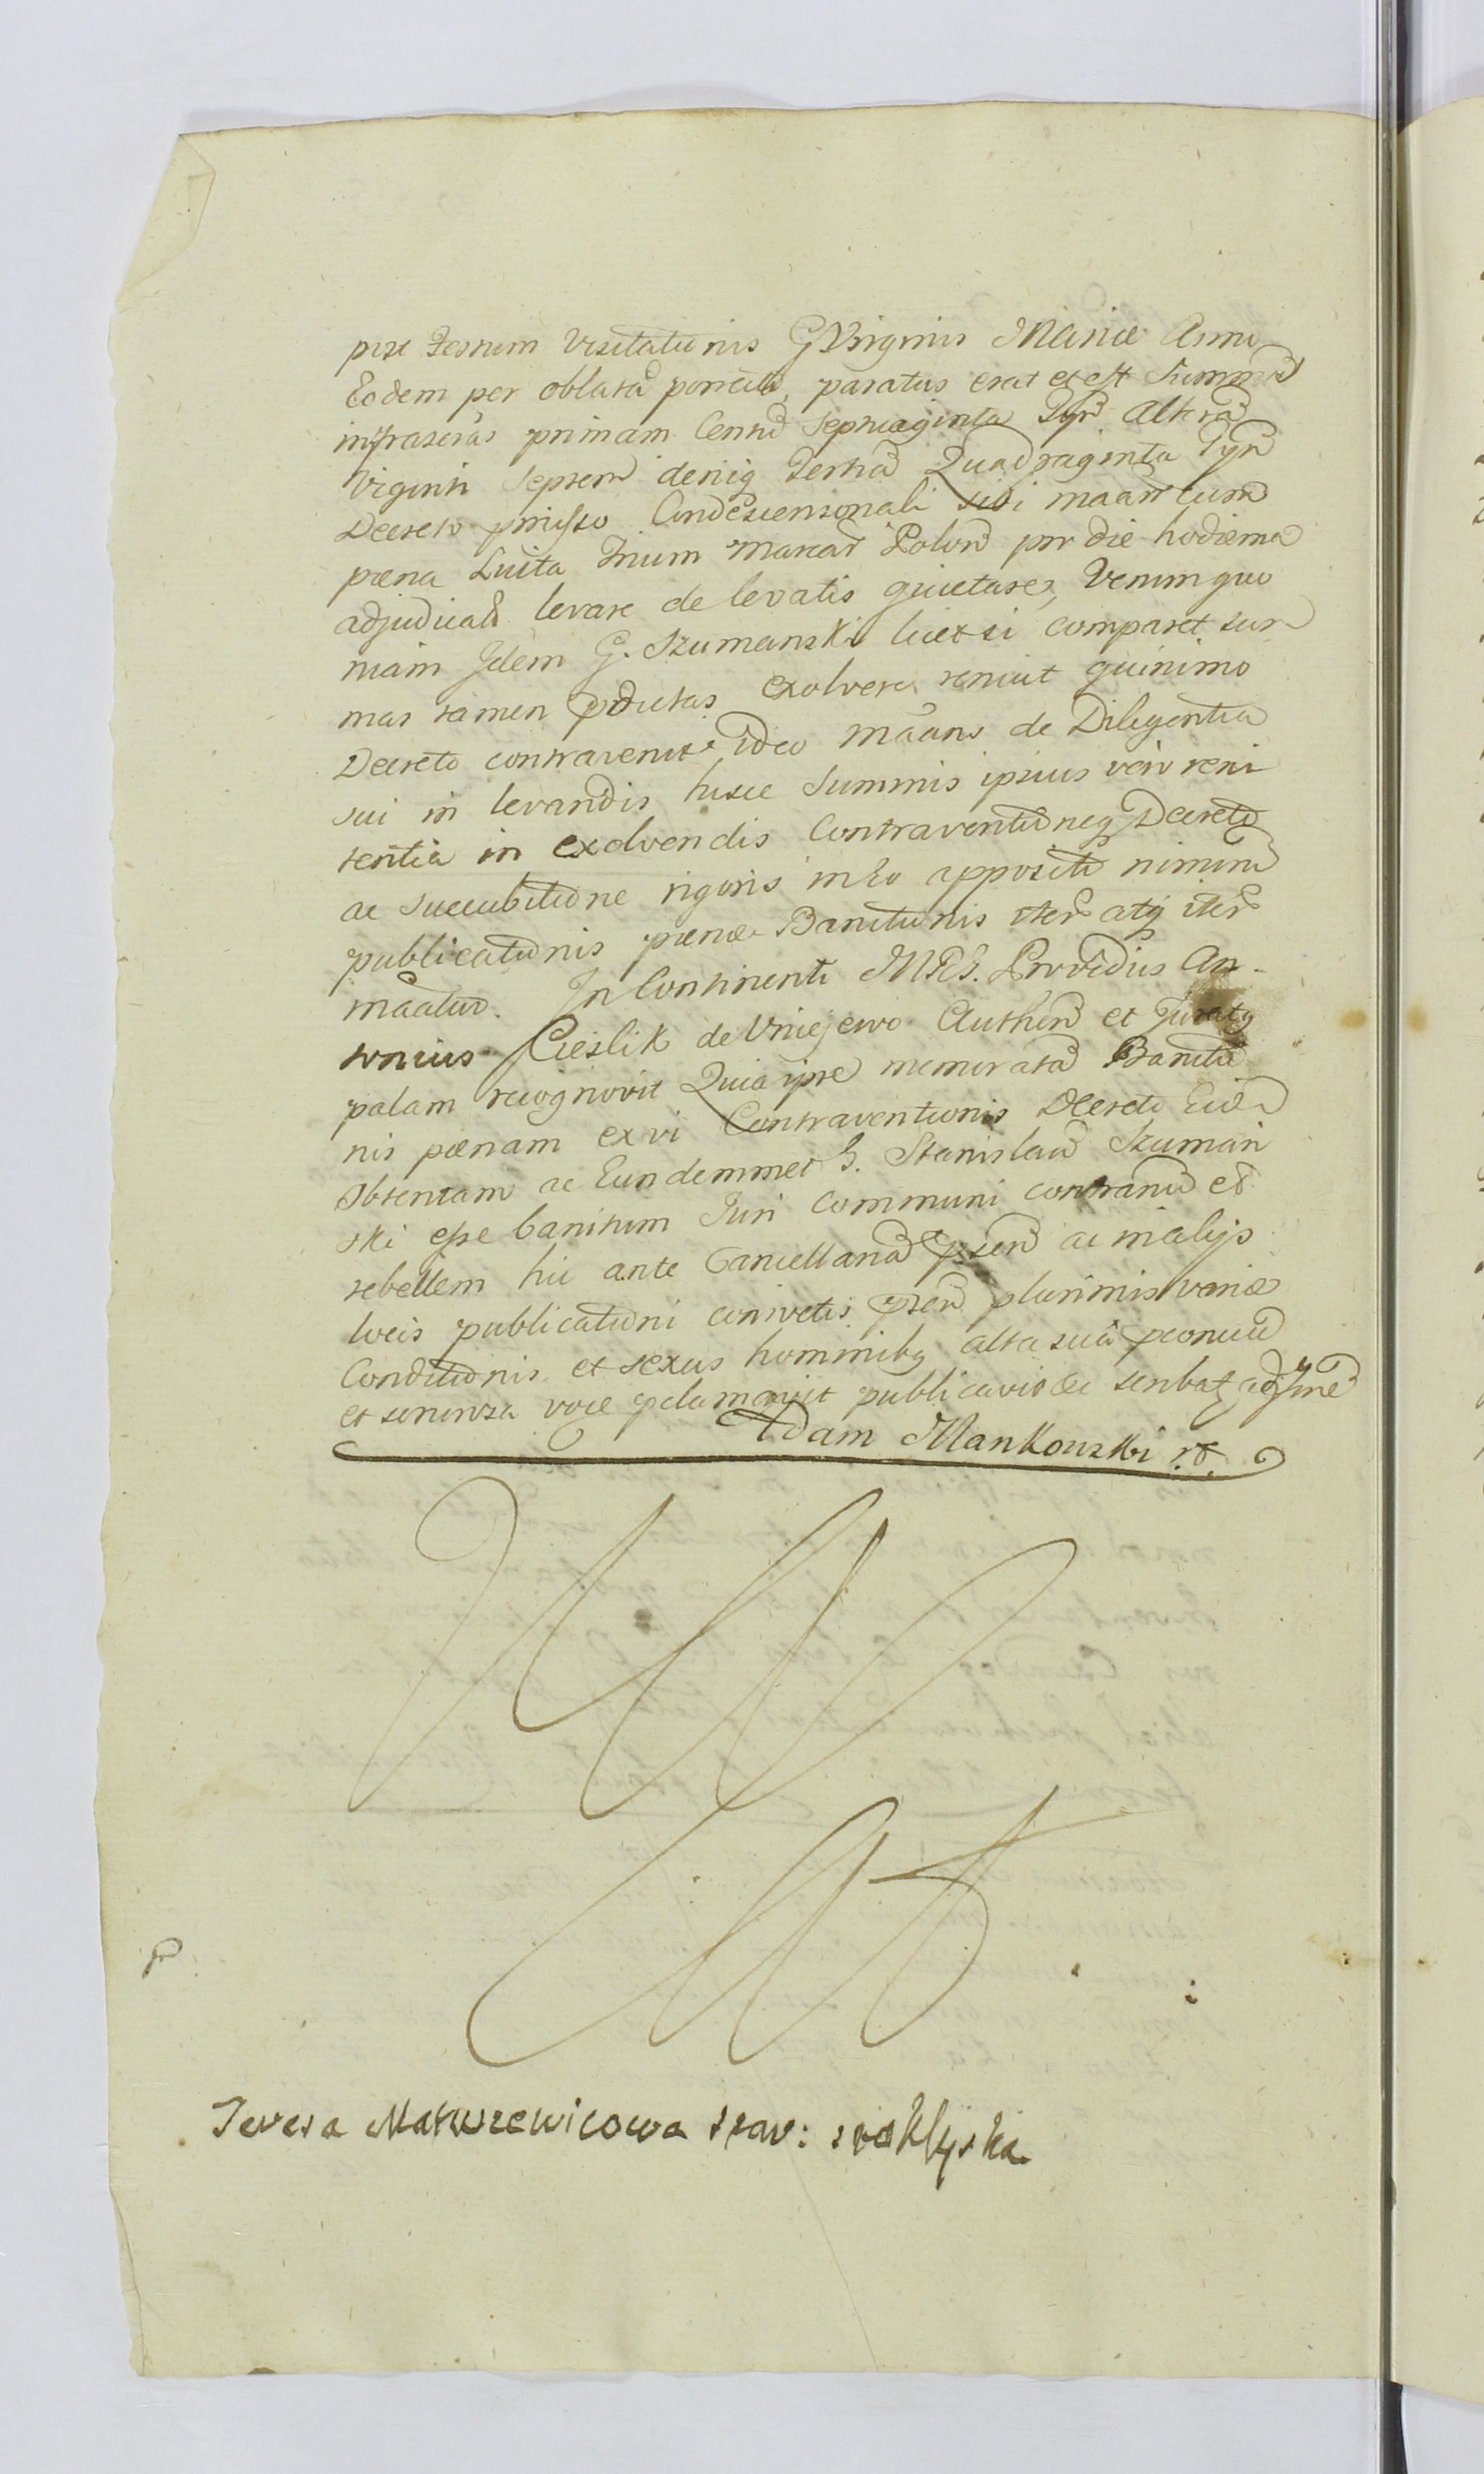 post Festum Visitationis G Virginis Mariæ Anno
Eodem per oblatã porrectã, paratus erat et est Summas
infrascras primam Centũ Septuaginta Tyr̃ Alterã
Viginti Septem deniq Tertiã Quadraginta Tyr̃
Decreto pmisso Condescensionali sibi maan cum
pœna Luita Trium marcar̃ Polon̄ pro die hodierna
adjudicat̃ levare de levatis quietare, Verum quo
niam Idem G. Szumanski licet si comparet sum
mas tamen pdictas exolvere renuit quinimo
Decreto contravenit ideo mãans de Diligentia
sui in levandis hisce Summis ipsius vero reni
tentia in exolvendis Contraventioneq Decreto
ac Succubitione rigoris in Eo appositi nimirũ
publicationis pœnæ Banitionis iter̃ atq iter̃
mãatur. In Continenti MRS. Providus An-
tonius Cieslik de Uniejewo Authen̄ et Juratq
palam recognovit Quia ipse memoratã Banitio
nis pœnam ex vi Contraventionis Decreto Eidẽ
Obtentam ac Eundemmet G. Stanislaũ Szuman
ski esse banitum Juri Communi contrariũ et
rebellem hic ante Cancellariã psen̄ ac in alijs
locis publicationi consvetis psen̄ plurimis variæ
Conditionis et sexus hominibq alta sua pconicã
et sonorosa voce pclamavit publicavit &c scribat ad fine
Adam Mankowski
Teresa Matuszewicowa